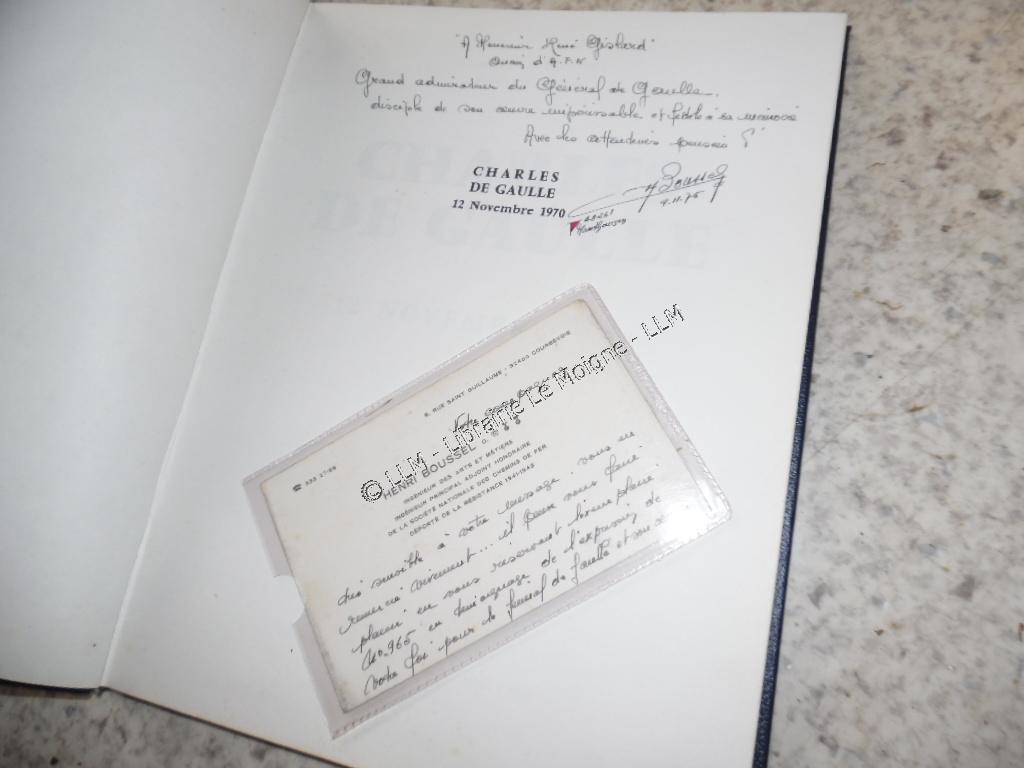 "A Monsieur René
Grand admirateur du Général de Gaulle.
disciple de son œuvre impérissable et fidèle à sa mémoire
Avec les
H Boussel
9.11.75
CHARLES
DE GAULLE
12 Novembre 1970
CHARLES
DE GAULLE
12 NOVEM
8, RUE SAINT GUILLAUME - 92400 COURBEVOIE
☎ 333 27-69
HENRI BOUSSEL
INGÉNIEUR DES ARTS ET MÉTIERS
INGÉNIEUR PRINCIPAL ADJOINT HONORAIRE
DE LA SOCIÉTÉ NATIONALE DES CHEMINS DE FER
DÉPORTÉ DE LA RÉSISTANCE 1941-1945
très sensible à votre message vous en
remercie vivement... il pense vous faire
plaisir en vous réservant l'exemplaire
No. 965 en témoignage de l'expression de
votre foi pour le Général de Gaulle et son
© LLM - Librairie Le Moigne - LLM